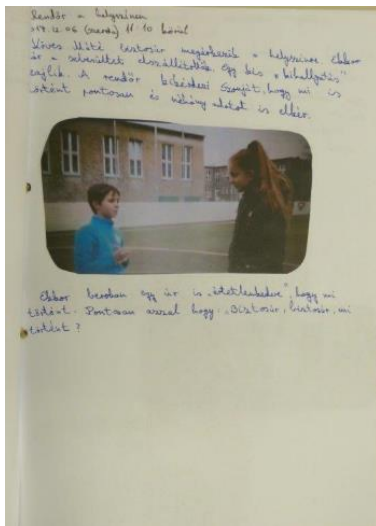 Rendőr a helyszínen
2017. 12. 06 (szerda) 11:10 körül
Köves Máté biztosúr megérkezik a helyszínre. Ekkor
ár a sebesültet elszállították. Egy kis „kihallgatás"
zajlik. A rendőr kikérdezi hogy mi is
történt pontosan és néhány adatot is elkér.
Ekkor berohan egy úr is „értetlenkedve", hogy mi
történt. Pontosan azzal hogy: „Biztosúr, biztosúr, mi
történt?